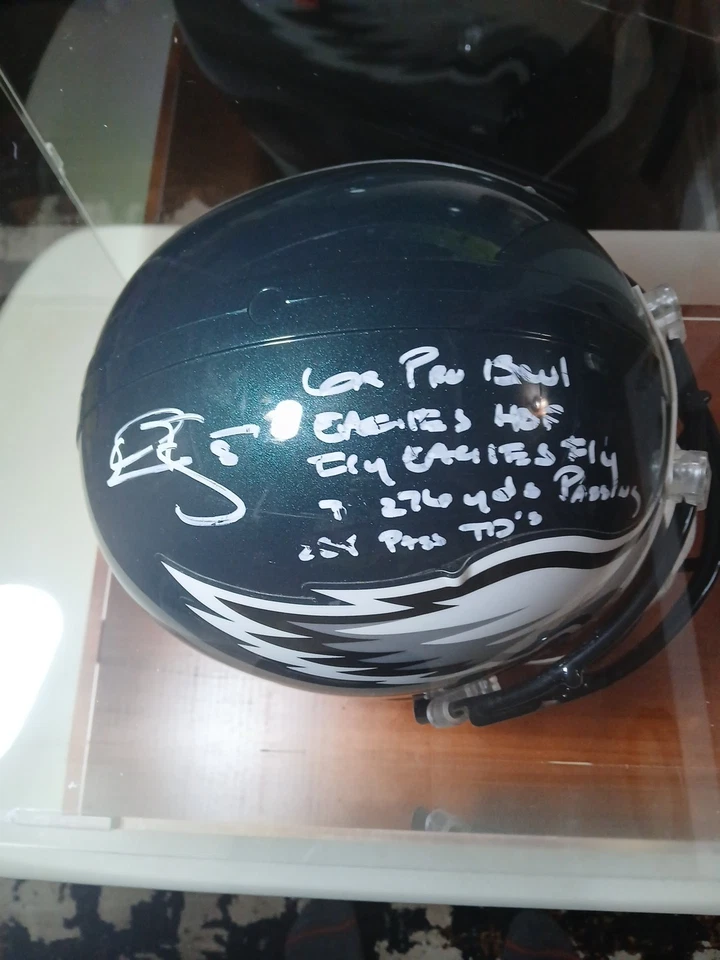 6x Pro Bowl
EAGLES HOF
Fly EAGLES Fly
276 yds Passing
Pass TD's
5